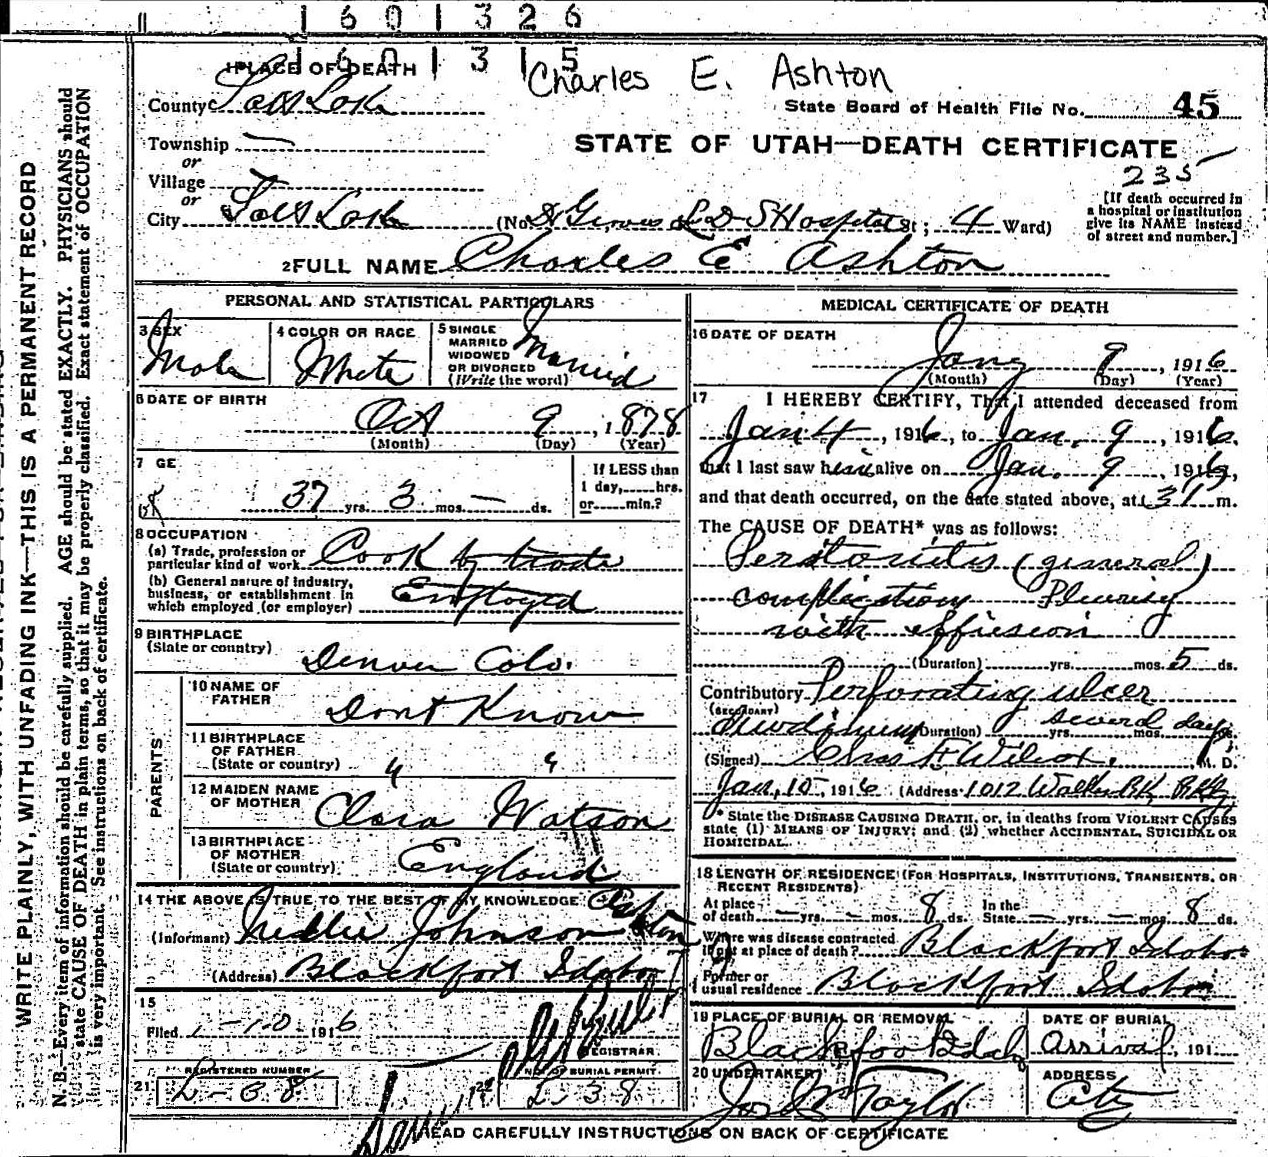 1 6 0 1 3 2 6
1 6 0 1 3 1 5
Charles E. Ashton
1 PLACE OF DEATH
County Salt Lake
State Board of Health File No. 45
Township —
or
Village
or
City Salt Lake
STATE OF UTAH—DEATH CERTIFICATE
235
(No. Dr Groves L D S Hospital St; 4 Ward)
[If death occurred in
a hospital or institution
give its NAME instead
of street and number.]
2 FULL NAME Charles E Ashton
PERSONAL AND STATISTICAL PARTICULARS
3 SEX
Male
4 COLOR OR RACE
White
5 SINGLE
MARRIED
WIDOWED
OR DIVORCED
(Write the word)
Married
6 DATE OF BIRTH
Oct 9, 1878
(Month) (Day) (Year)
7 GE
37 yrs. 3 mos. — ds.
If LESS than
1 day, hrs.
or min.?
8 OCCUPATION
(a) Trade, profession or
particular kind of work Cook by trade
(b) General nature of industry,
business, or establishment in
which employed (or employer) Employed
9 BIRTHPLACE
(State or country) Denver Colo.
PARENTS
10 NAME OF
FATHER Dont Know
11 BIRTHPLACE
OF FATHER
(State or country) " "
12 MAIDEN NAME
OF MOTHER Clara Watson
13 BIRTHPLACE
OF MOTHER
(State or country) England
14 THE ABOVE IS TRUE TO THE BEST OF MY KNOWLEDGE
(Informant) Nellie Johnson Ashton
(Address) Blackfoot Idaho
15
Filed 1-10-1916
REGISTRAR
21 REGISTERED NUMBER
L-38
22 NO. OF BURIAL PERMIT
L 38
MEDICAL CERTIFICATE OF DEATH
16 DATE OF DEATH
Jany 9, 1916
(Month) (Day) (Year)
17 I HEREBY CERTIFY, That I attended deceased from
Jan 4, 1916, to Jan. 9, 1916,
that I last saw him alive on Jan. 9, 1916,
and that death occurred, on the date stated above, at m.
The CAUSE OF DEATH* was as follows:
Peritonitis (general)
complication Pleurisy
with effusion
(Duration) yrs. mos. 5 ds.
Contributory Perforating ulcer
(SECONDARY)
duodenum (Duration) yrs. several mos. days
(Signed) Chas F Wilcox, M. D.
Jan, 10, 1916 (Address 1012 Walker Bk Bldg
* State the DISEASE CAUSING DEATH, or, in deaths from VIOLENT CAUSES
state (1) MEANS OF INJURY; and (2) whether ACCIDENTAL, SUICIDAL OR
HOMICIDAL.
18 LENGTH OF RESIDENCE (FOR HOSPITALS, INSTITUTIONS, TRANSIENTS, OR
RECENT RESIDENTS)
At place
of death — yrs. — mos. 8 ds. In the
State — yrs. — mos. 8 ds.
Where was disease contracted
if not at place of death? Blackfoot Idaho
Former or
usual residence Blackfoot Idaho
19 PLACE OF BURIAL OR REMOVAL
Blackfoot Idaho
DATE OF BURIAL
Arrival, 191
20 UNDERTAKER
Jos Wm Taylor
ADDRESS
City
READ CAREFULLY INSTRUCTIONS ON BACK OF CERTIFICATE
WRITE PLAINLY, WITH UNFADING INK—THIS IS A PERMANENT RECORD
N. B.—Every item of information should be carefully supplied. AGE should be stated EXACTLY. PHYSICIANS should
state CAUSE OF DEATH in plain terms, so that it may be properly classified. Exact statement of OCCUPATION
is very important. See instructions on back of certificate.